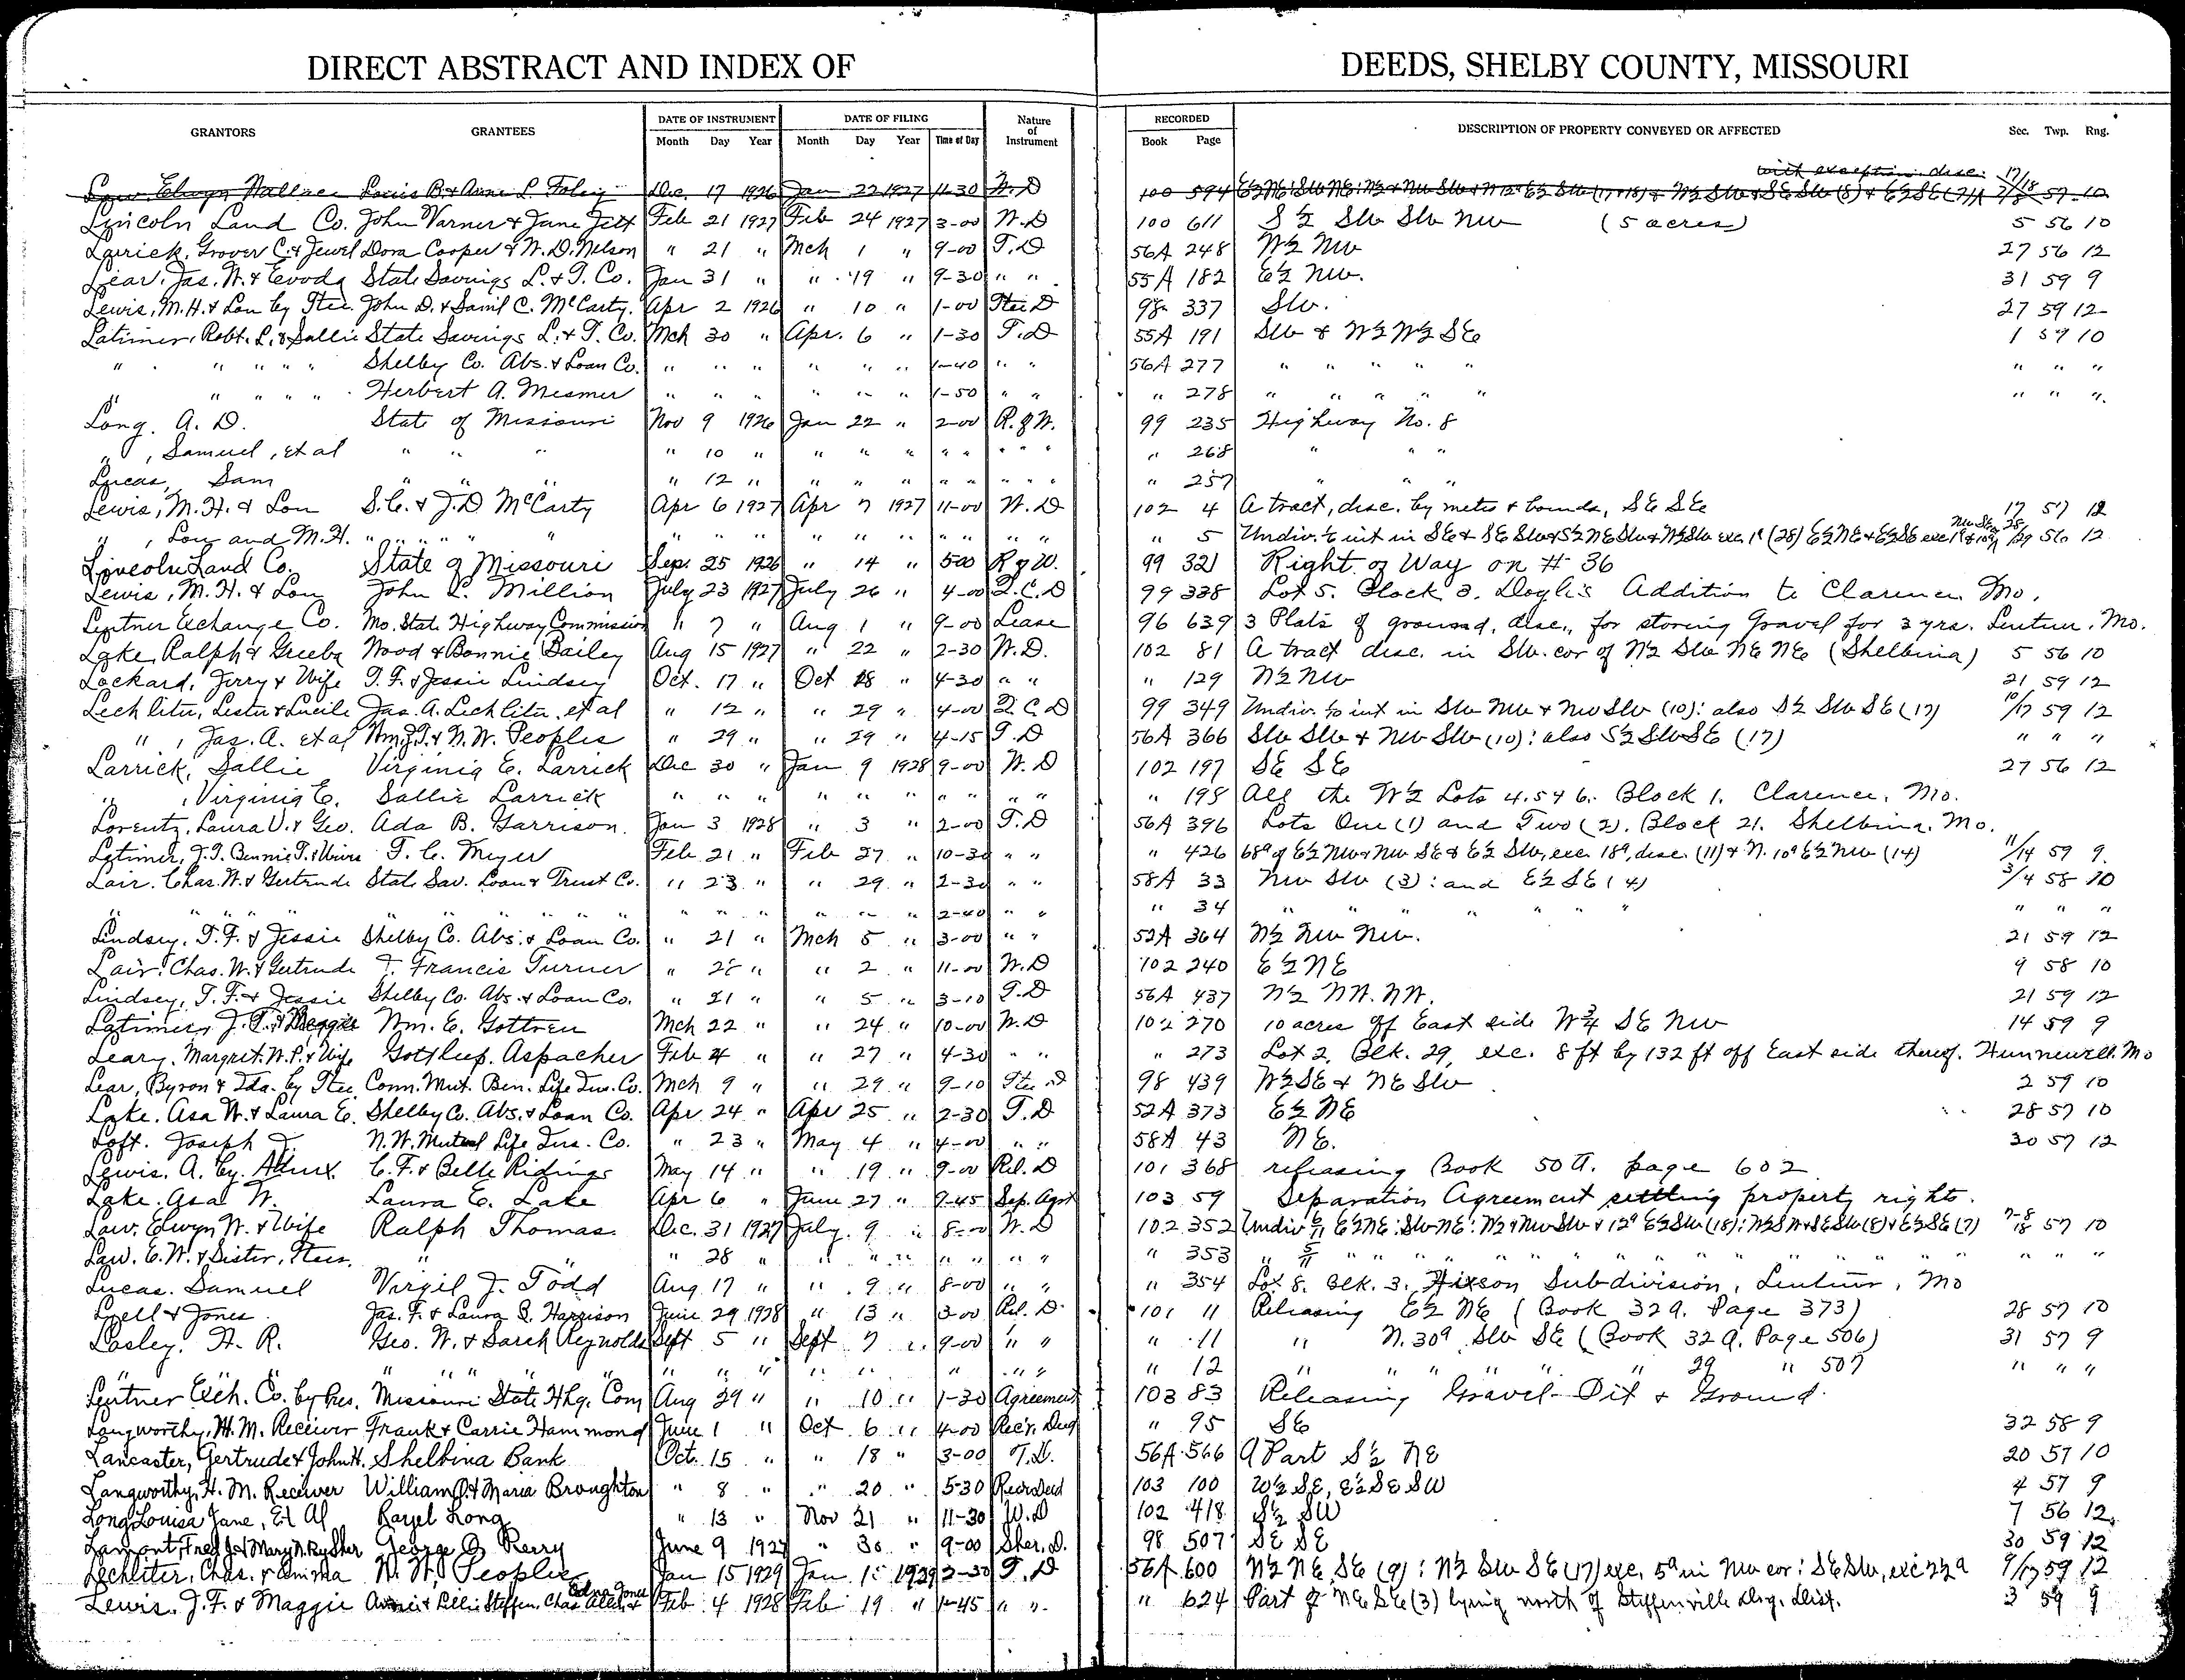 DIRECT ABSTRACT AND INDEX OF DEEDS, SHELBY COUNTY, MISSOURI
GRANTORS GRANTEES DATE OF INSTRUMENT DATE OF FILING Nature of Instrument RECORDED DESCRIPTION OF PROPERTY CONVEYED OR AFFECTED Sec. Twp. Rng.
Month Day Year Month Day Year Time of Day Book Page
with exception disc.
Law Elwyn Wallace Louis B. & Anna L. Foley Dec. 17 1926 Jan 22 1927 11-30 W.D 100 594 57 10
Lincoln Land Co. John Varner & Jane Jett Feb 21 1927 Feb 24 1927 3-00 W.D 100 611 S½ SW SW NW (5 acres) 5 56 10
Larrick, Grover C. & Jewel Dora Cooper & W.D. Nelson " 21 " Mch 1 " 9-00 T.D 56A 248 W½ NW 27 56 12
Lear, Jas. W. & Evoda State Savings L. & T. Co. Jan 31 " " 19 " 9-30 " " 55A 182 E½ NW. 31 59 9
Lewis, M.H. & Lou by Stee. John D. & Saml C. McCarty. Apr 2 1926 " 10 " 1-00 Stee D 98 337 SW. 27 59 12
Latimer, Robt. L. & Sallie State Savings L. & T. Co. Mch 30 " Apr. 6 " 1-30 T.D 55A 191 SW & W½ W½ SE 1 59 10
" " " " " Shelby Co. Abs. & Loan Co. " " " " " " 1-40 " " 56A 277 " " " " " " " "
" " " " " Herbert A. Mesmer " " " " " " 1-50 " " " 278 " " " " " " " "
Long, A. D. State of Missouri Nov 9 1926 Jan 22 " 2-00 R. of W. 99 235 Highway No. 8
" , Samuel, et al " " " " 10 " " " " " " " " " " 268 " " "
Lucas, Sam " " " " 12 " " " " " " " " " " 257 " " "
Lewis, M.H. & Lou S.C. & J.D McCarty Apr 6 1927 Apr 7 1927 11-00 W.D 102 4 A tract, disc. by metes & bounds, SE SE 17 57 12
" , Lou and M.H. " " " " " " " " " " " " " " " " 5 Undiv. ½ int in SE & SE SW & S½ NE SW & W½ SW exc. 1ª (28) E½ NE & E½ SE 56 12
Lincoln Land Co. State of Missouri Sep. 25 1926 " 14 " 500 R of W. 99 321 Right of Way on # 36
Lewis, M. H. & Lou John L. Million July 23 1927 July 26 " 4-00 Q.C.D 99 338 Lot 5. Block 3. Doyle's Addition to Clarence Mo.
Lentner Exchange Co. Mo. State Highway Commission " 7 " Aug 1 " 9-00 Lease 96 639 3 Plats of ground, disc., for storing Gravel for 3 yrs. Lentner, Mo.
Lake, Ralph & Greeba Wood & Bonnie Bailey Aug 15 1927 " 22 " 2-30 W.D. 102 81 A tract disc. in SW. cor of W½ SW NE NE (Shelbina) 5 56 10
Lockard, Jerry & Wife T. F. & Jessie Lindsey Oct. 17 " Oct 18 " 4-30 " " " 129 W½ NW 21 59 12
Lechliter, Lester & Lucile Jas. A. Lechliter, et al " 12 " " 29 " 4-00 Q.C.D 99 349 Undiv. int in SW NW & NW SW (10): also S½ SW SE (17) 10/17 59 12
" , Jas. A. et al Wm. J. T. & N. W. Peoples " 29 " " 29 " 4-15 T.D 56A 366 SW SW & NW SW (10): also S½ SW SE (17) " " "
Larrick, Sallie Virginia E. Larrick Dec 30 " Jan 9 1928 9-00 W.D 102 197 SE SE 27 56 12
" , Virginia E. Sallie Larrick " " " " " " " " " " " 198 All the W½ Lots 4.5 & 6. Block 1. Clarence, Mo.
Lorentz, Laura V. & Geo. Ada B. Garrison. Jan 3 1928 " 3 " 2-00 T.D 56A 396 Lots One (1) and Two (2). Block 21. Shelbina, Mo.
Latimer, J.T. Bennie T. & Wives T. C. Meyer Feb 21 " Feb 27 " 10-30 " " " 426 68ª of E½ NW & NW SE & E½ SW, exc. 18ª, disc. (11) & N. 10ª E½ NW (14) 11/14 59 9
Lair, Chas. W. & Gertrude State Sav. Loan & Trust Co. " 23 " " 29 " 2-30 " " 58A 33 NW SW (3): and E½ SE (4) 3/4 58 10
" " " " " " " " " " " " " " " " 2-40 " " " 34 " " " " " " " " " "
Lindsey, T.F. & Jessie Shelby Co. Abs. & Loan Co. " 21 " Mch 5 " 3-00 " " 52A 364 W½ NW NW. 21 59 12
Lair, Chas. W. & Gertrude T. Francis Turner " 28 " " 2 " 11-00 W.D 102 240 E½ NE 9 58 10
Lindsey, T.F. & Jessie Shelby Co. Abs. & Loan Co. " 21 " " 5 " 3-10 T.D 56A 437 W½ NW. NW. 21 59 12
Latimer, J. T. & Maggie Wm. E. Gottren Mch 22 " " 24 " 10-00 W.D 102 270 10 acres off East side W¾ SE NW 14 59 9
Leary, Margret. W.P. & Wife Gottleep. Aspacher Feb 4 " " 27 " 4-30 " " " 273 Lot 2, Blk. 29, exc. 8 ft by 132 ft off East side thereof. Hunnewell. Mo
Lear, Byron & Ida. by Stee Conn. Mut. Ben. Life Ins. Co. Mch 9 " " 29 " 9-10 Stee D 98 439 W½ SE & NE SW 2 59 10
Lake, Asa W. & Laura E. Shelby Co. Abs. & Loan Co. Apr 24 " Apr 25 " 2-30 T.D 52A 373 E½ NE 28 57 10
Loft. Joseph T. N.W. Mutual Life Ins. Co. " 23 " May 4 " 4-00 " " 58A 43 NE. 30 57 12
Lewis. A. by. Admx. C.F. & Belle Ridings May 14 " " 19 " 9-00 Rel. D 101 368 releasing Book 50 A. page 602
Lake, Asa W. Laura E. Lake Apr 6 " June 27 " 9-45 Sep. Agmt 103 59 Separation Agreement settling property rights.
Law, Elwyn W. & Wife Ralph Thomas Dec. 31 1927 July. 9 " 8-00 W.D 102 352 Undiv 6/11 E½ NE: SW NE: W½ & NW SW & 12ª E½ SW (18): W½ SW & SE SW (8) & E½ SE (7) 7-8/18 57 10
Law. E.W. & Sister, Stees. " " " 28 " " " " " " " " " 353 " 5/11 " " " " " " " " " " " "
Lucas. Samuel Virgil J. Todd Aug 17 " " 9 " 8-00 " " " 354 Lot 8. Blk. 3. Hixson Subdivision, Lentner, Mo
Lyell & Jones Jas. F. & Laura B. Harrison June 29 1928 " 13 " 3-00 Rel. D. 101 11 Releasing E½ NE (Book 32A. Page 373) 28 57 10
Lasley, H. R. Geo. W. & Sarah Reynolds Sept 5 " Sept 7 " 9-00 " " " 11 " N. 30ª SW SE (Book 32 A. Page 506) 31 57 9
" " " " " " " " " " " " " " " 12 " " " " " " 29 " 507 " " "
Lentner Exch. Co. by Pres. Missouri State Hhg. Com Aug 29 " " 10 " 1-30 Agreement 103 83 Releasing Gravel Pit & Ground
Langworthy, H.M. Receiver Frank & Carrie Hammond June 1 " Oct 6 " 4-00 Rec'r. Deed " 95 SE 32 58 9
Lancaster, Gertrude & John H. Shelbina Bank Oct. 15 " " 18 " 3-00 T.D. 56A 566 A Part S½ NE 20 57 10
Langworthy, H. M. Receiver William J. & Maria Broughton " 8 " " 20 " 5-30 Recvrs Deed 103 100 W½ SE, E½ SE SW 4 57 9
Long Louisa Jane, Et Al Razel Long " 13 " Nov 21 " 11-30 W.D 102 418 S½ SW 7 56 12
Lamont, Fred J. & Mary N. By Sher George O. Perry June 9 1927 " 30 " 9-00 Sher. D. 98 507 SE SE 30 59 12
Lechliter, Chas. & Emma N. W. Peoples Jan 15 1929 Jan 15 1929 2-30 T.D 56A 600 W½ NE SE (9): W½ SW SE (17) exc. 5ª in NW cor: SE SW, exc 2½ª 9/17 59 12
Edna Jones
Lewis, J.F. & Maggie & Lillie Steffen, Chas. Allen & Feb 4 1928 Feb 19 " 1-45 " " " 624 Part of NE SE (3) lying north of Steffenville Drg. Dist. 3 59 9